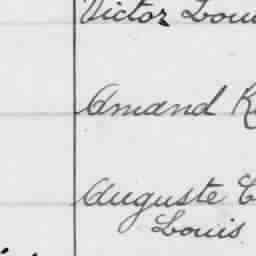 Victor Loui
Amand R
Auguste C
Louis